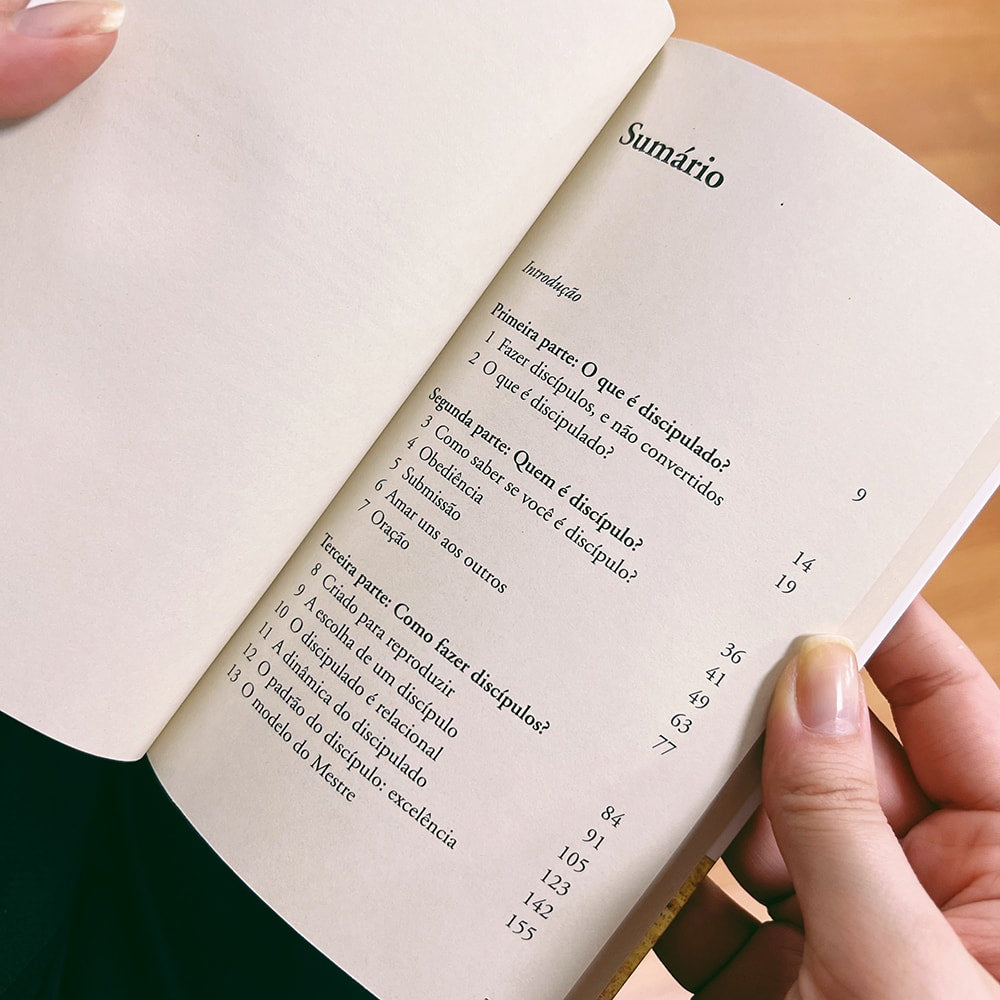 Sumário
Introdução 9
Primeira parte: O que é discipulado?
1 Fazer discípulos, e não convertidos 14
2 O que é discipulado? 19
Segunda parte: Quem é discípulo?
3 Como saber se você é discípulo? 36
4 Obediência 41
5 Submissão 49
6 Amar uns aos outros 63
7 Oração 77
Terceira parte: Como fazer discípulos?
8 Criado para reproduzir 84
9 A escolha de um discípulo 91
10 O discipulado é relacional 105
11 A dinâmica do discipulado 123
12 O padrão do discípulo: excelência 142
13 O modelo do Mestre 155